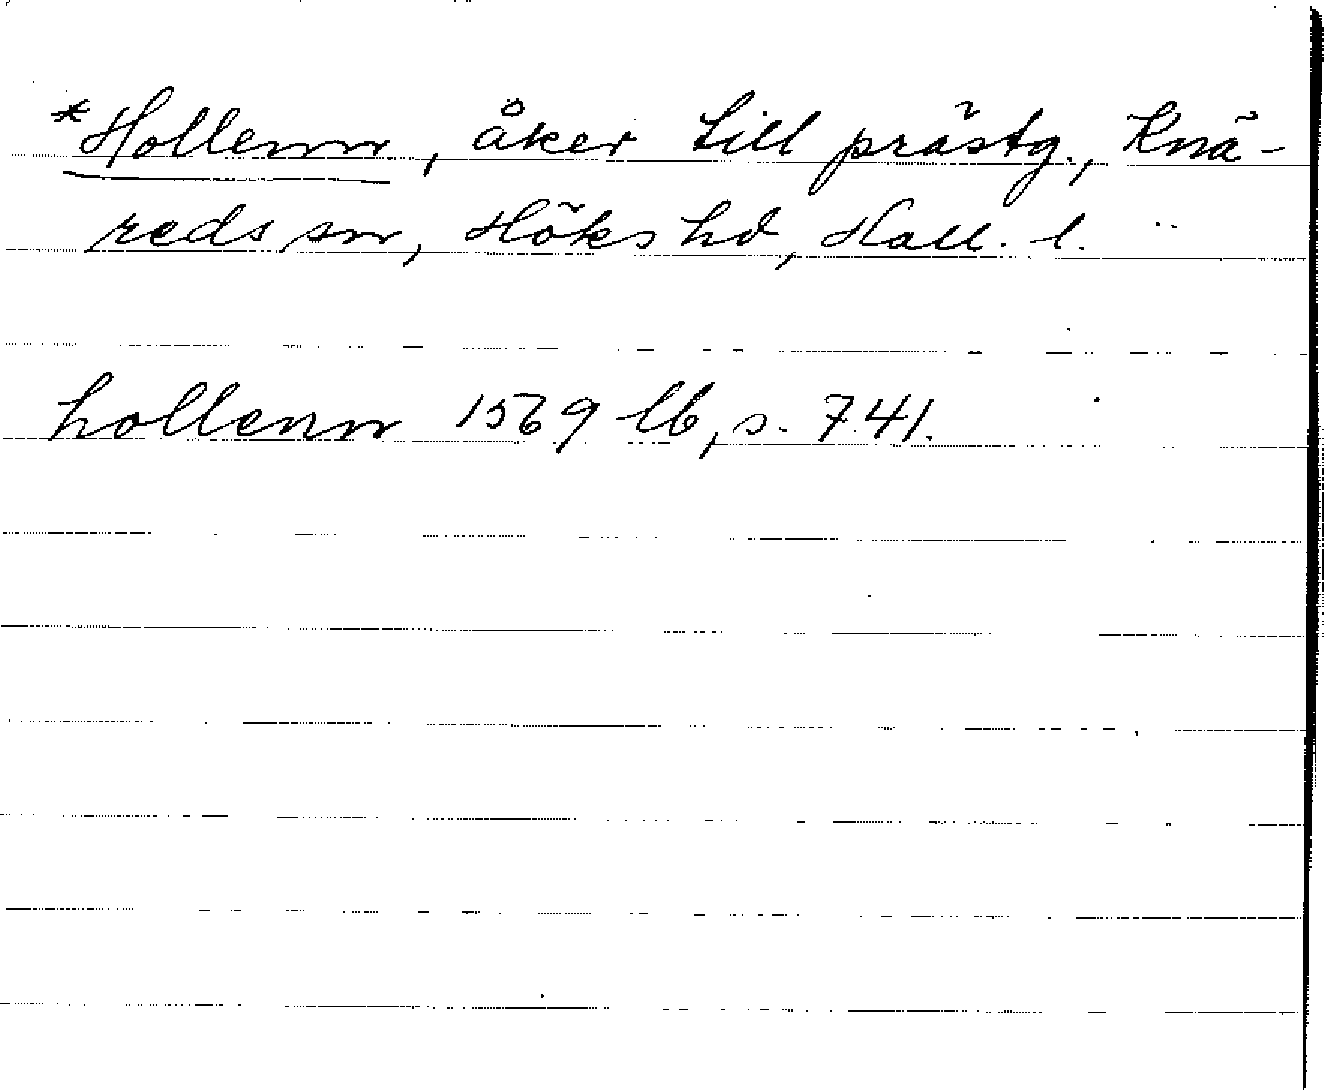 *Hollenn, åker till prästg., Knä-
reds sn, Höks hd, Hall. l.
hollenn 1569 lb, s. 741.